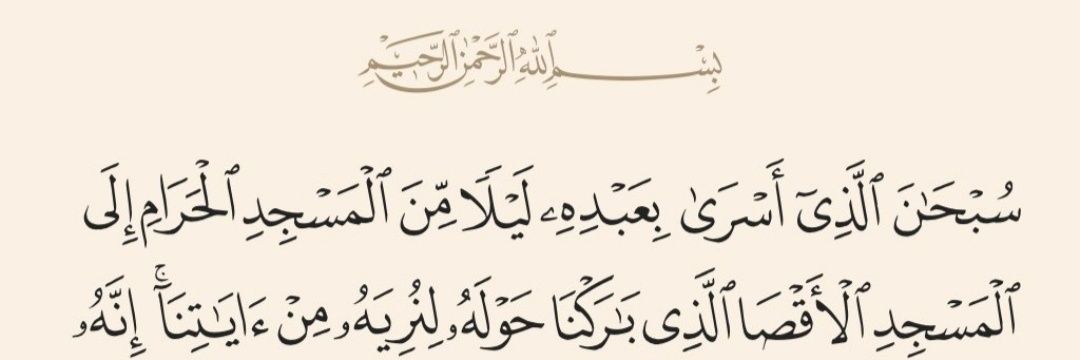 بِسْمِ ٱللَّهِ ٱلرَّحْمَٰنِ ٱلرَّحِيمِ
سُبْحَٰنَ ٱلَّذِىٓ أَسْرَىٰ بِعَبْدِهِۦ لَيْلًا مِّنَ ٱلْمَسْجِدِ ٱلْحَرَامِ إِلَى
ٱلْمَسْجِدِ ٱلْأَقْصَا ٱلَّذِى بَٰرَكْنَا حَوْلَهُۥ لِنُرِيَهُۥ مِنْ ءَايَٰتِنَآ ۚ إِنَّهُۥ